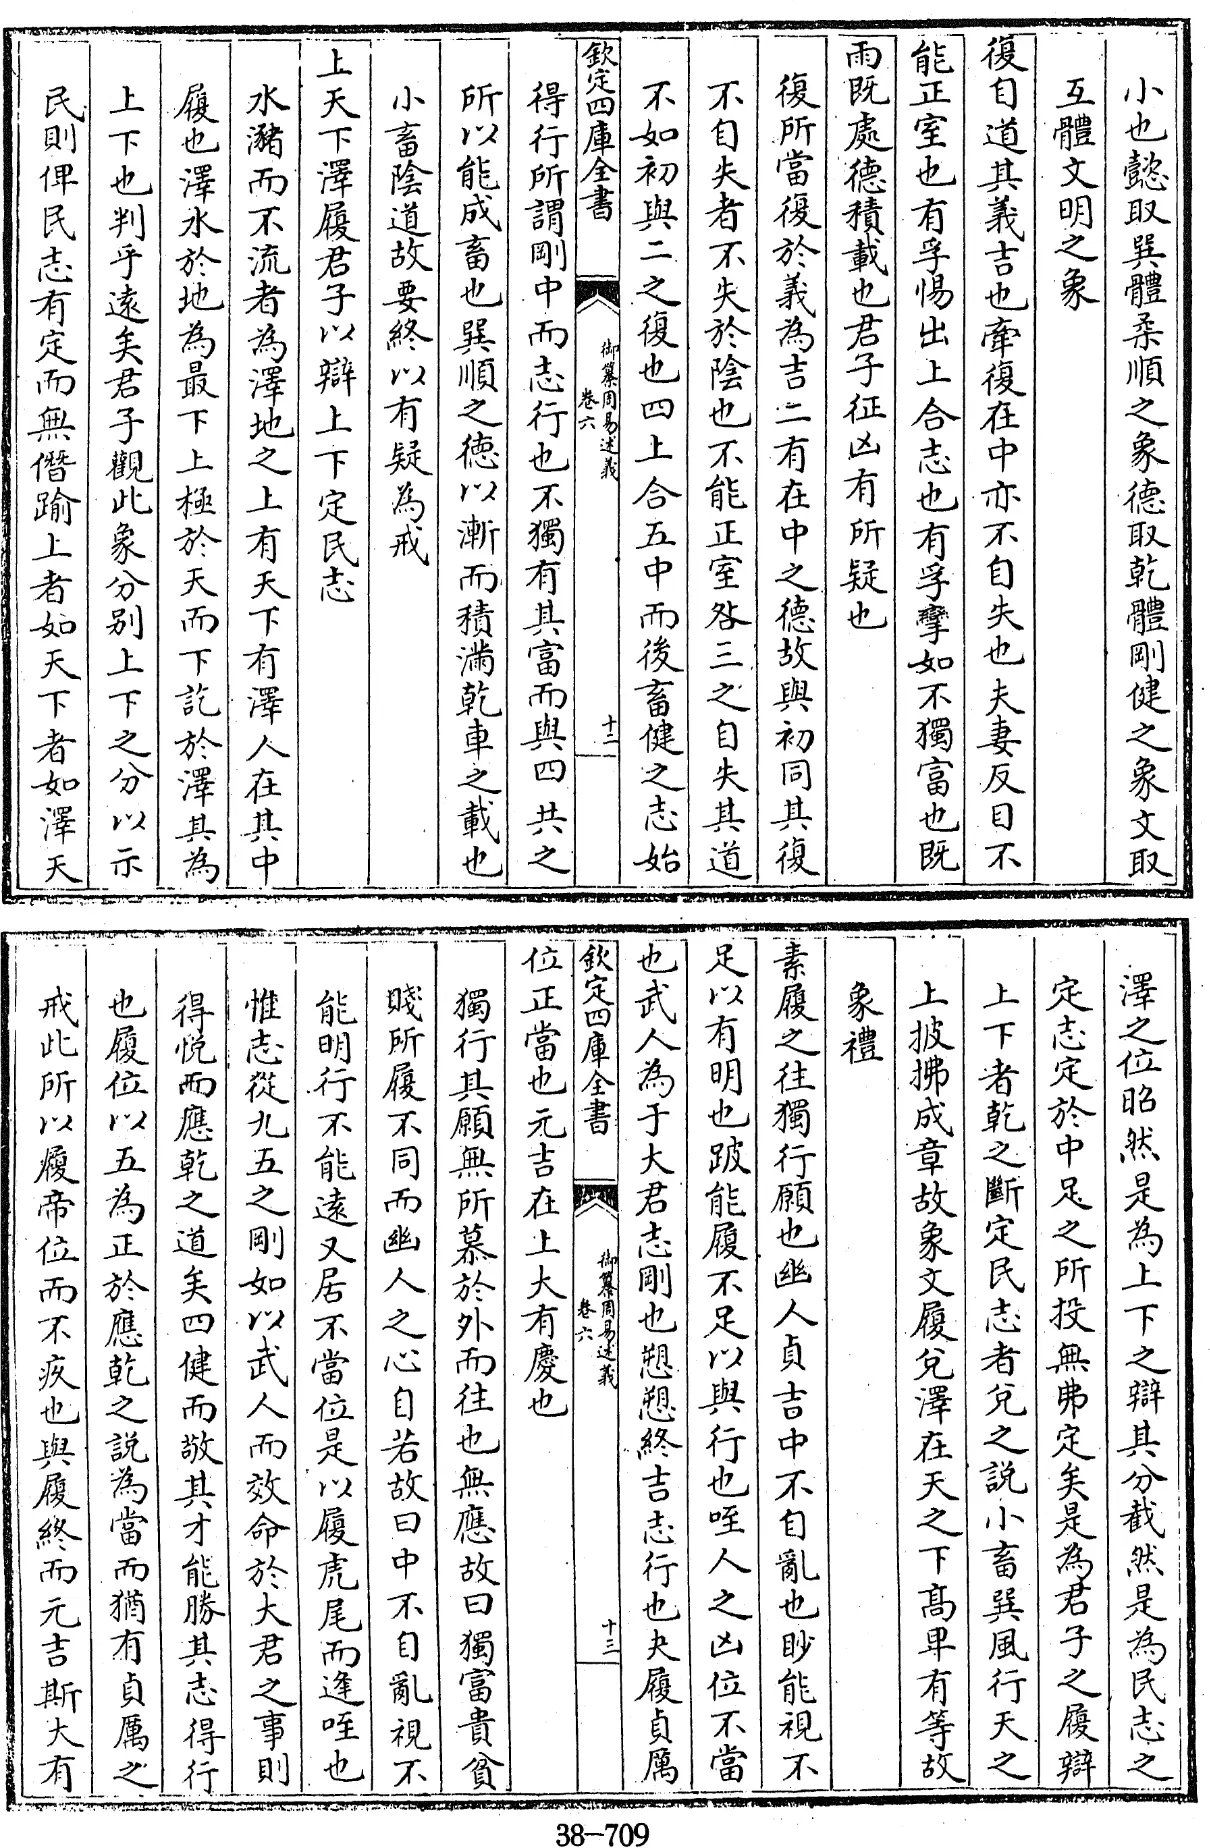 小也懿取巽體柔順之象德取乾體剛健之象文取
互體文明之象
復自道其義吉也牽復在中亦不自失也夫妻反目不
能正室也有孚惕出上合志也有孚攣如不獨富也既
雨既處德積載也君子征凶有所疑也
復所當復於義為吉二有在中之德故與初同其復
不自失者不失於陰也不能正室咎三之自失其道
不如初與二之復也四上合五中而後畜健之志始
欽定四庫全書
御纂周易述義
卷六
十二
得行所謂剛中而志行也不獨有其富而與四共之
所以能成畜也巽順之德以漸而積滿乾車之載也
小畜陰道故要終以有疑為戒
上天下澤履君子以辯上下定民志
水瀦而不流者為澤地之上有天下有澤人在其中
履也澤水於地為最下上極於天而下訖於澤其為
上下也判乎遠矣君子觀此象分别上下之分以示
民則俾民志有定而無僭踰上者如天下者如澤天
澤之位昭然是為上下之辯其分截然是為民志之
定志定於中足之所投無弗定矣是為君子之履辯
上下者乾之斷定民志者兌之說小畜巽風行天之
上披拂成章故象文履兌澤在天之下高卑有等故
象禮
素履之往獨行願也幽人貞吉中不自亂也眇能視不
足以有明也跛能履不足以與行也咥人之凶位不當
也武人為于大君志剛也愬愬終吉志行也夬履貞厲
欽定四庫全書
御纂周易述義
卷六
十三
位正當也元吉在上大有慶也
獨行其願無所慕於外而往也無應故曰獨富貴貧
賤所履不同而幽人之心自若故曰中不自亂視不
能明行不能遠又居不當位是以履虎尾而逢咥也
惟志從九五之剛如以武人而效命於大君之事則
得悅而應乾之道矣四健而敬其才能勝其志得行
也履位以五為正於應乾之說為當而猶有貞厲之
戒此所以履帝位而不疚也與履終而元吉斯大有
38-709